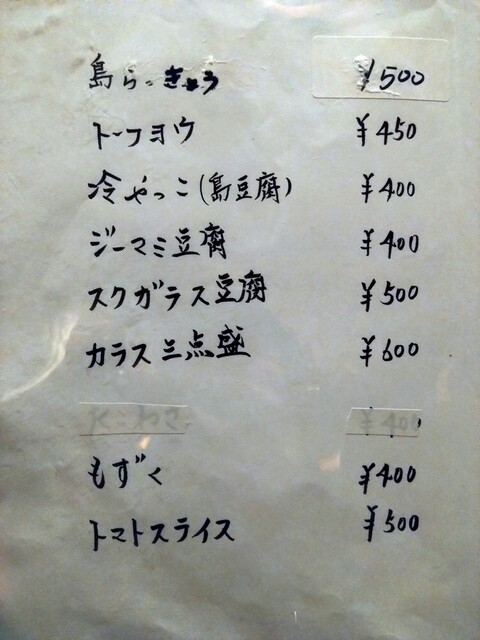 島らっきょう ¥500
トーフヨウ ¥450
冷やっこ(島豆腐) ¥400
ジーマミ豆腐 ¥400
スクガラス豆腐 ¥500
カラス三点盛 ¥600
¥400
もずく ¥400
トマトスライス ¥500